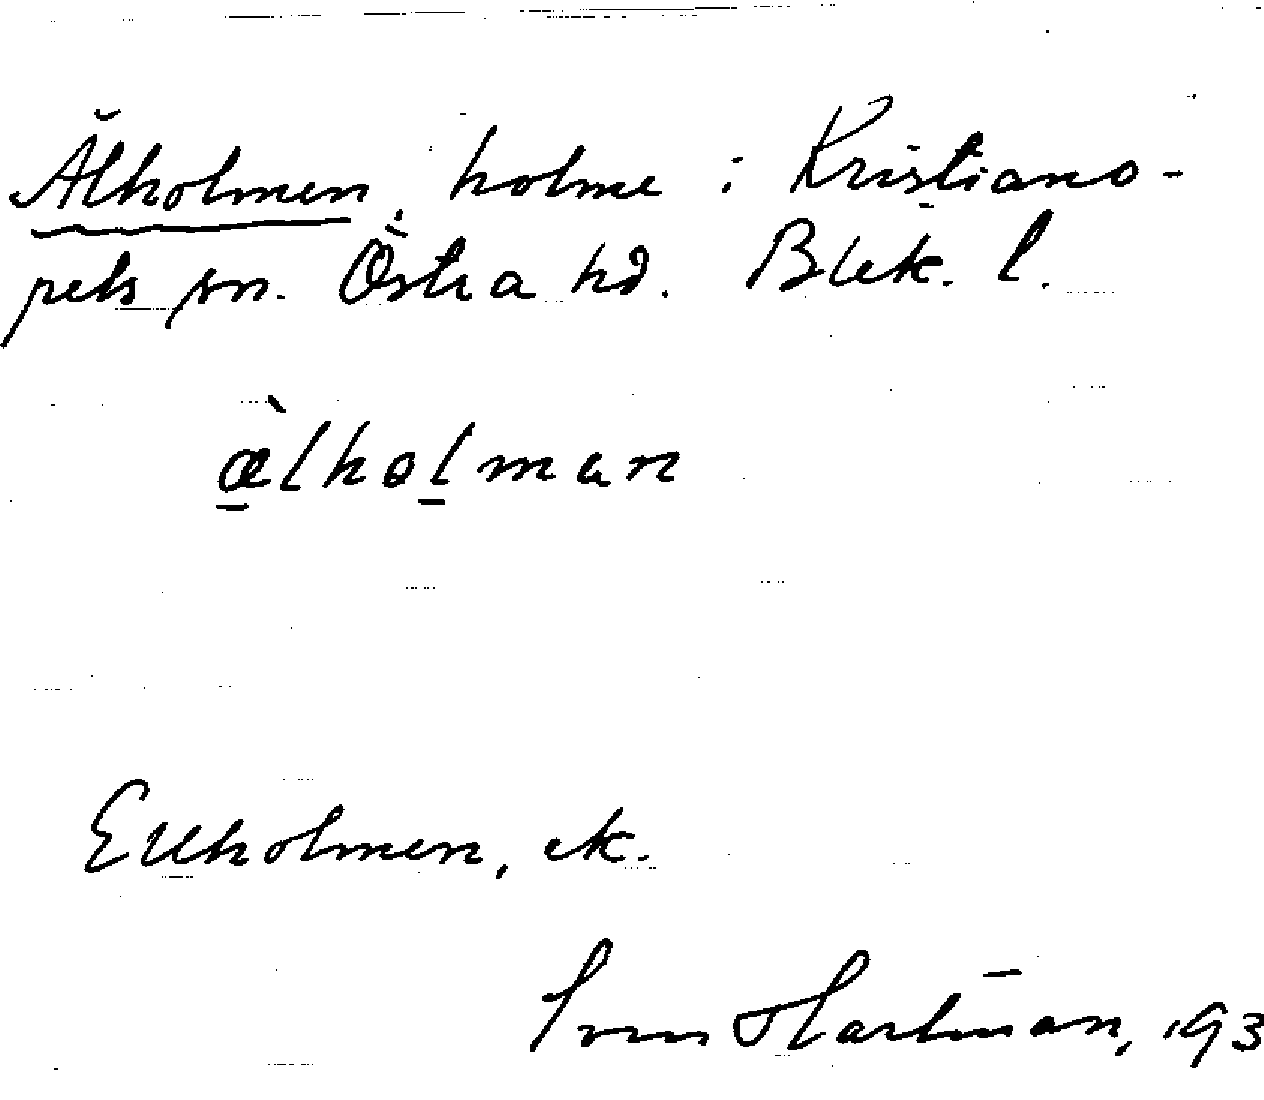 Älholmen, holme i Kristiano-
pels sn. Östra hd. Blek. l.
æ̀lholman
Ellholmen, ek.
Sven Hartman, 193